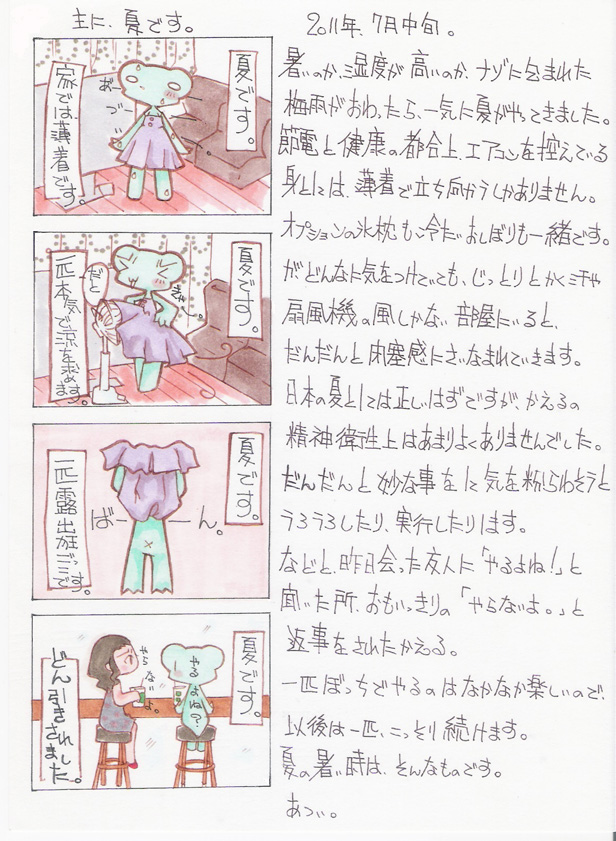 主に、夏です。
夏です。
家では、薄着です。
あー
づー
夏です。
一匹本気で涼を求めます。
だと
きゃー。
夏です。
一匹露出狂ごっこです。
ばーーん。
夏です。
やるよね?
やらないよ。
どん引きされました。
2011年、7月中旬。
暑いのか、湿度が高いのか、ナゾに包まれた
梅雨がおわったら、一気に夏がやってきました。
節電と健康の都合上、エアコンを控えている
身としては、薄着で立ち向かうしかありません。
オプションの氷枕も冷たいおしぼりも一緒です。
がどんなに気をつけていても、じっとりとかく汗や
扇風機の風しかない部屋にいると、
だんだんと閉塞感にさいなまれていきます。
日本の夏としては正しいはずですが、かえるの
精神衛生上はあまりよくありませんでした。
だんだんと妙な事をして気を紛らわそうと
うろうろしたり、実行したりします。
などと、昨日会った友人に「やるよね!」と
聞いた所、おもいっきりの「やらないよ。」と
返事をされたかえる。
一匹ぼっちでやるのはなかなか楽しいので、
以後は一匹、こっそり続けます。
夏の暑い時は、そんなものです。
あつい。